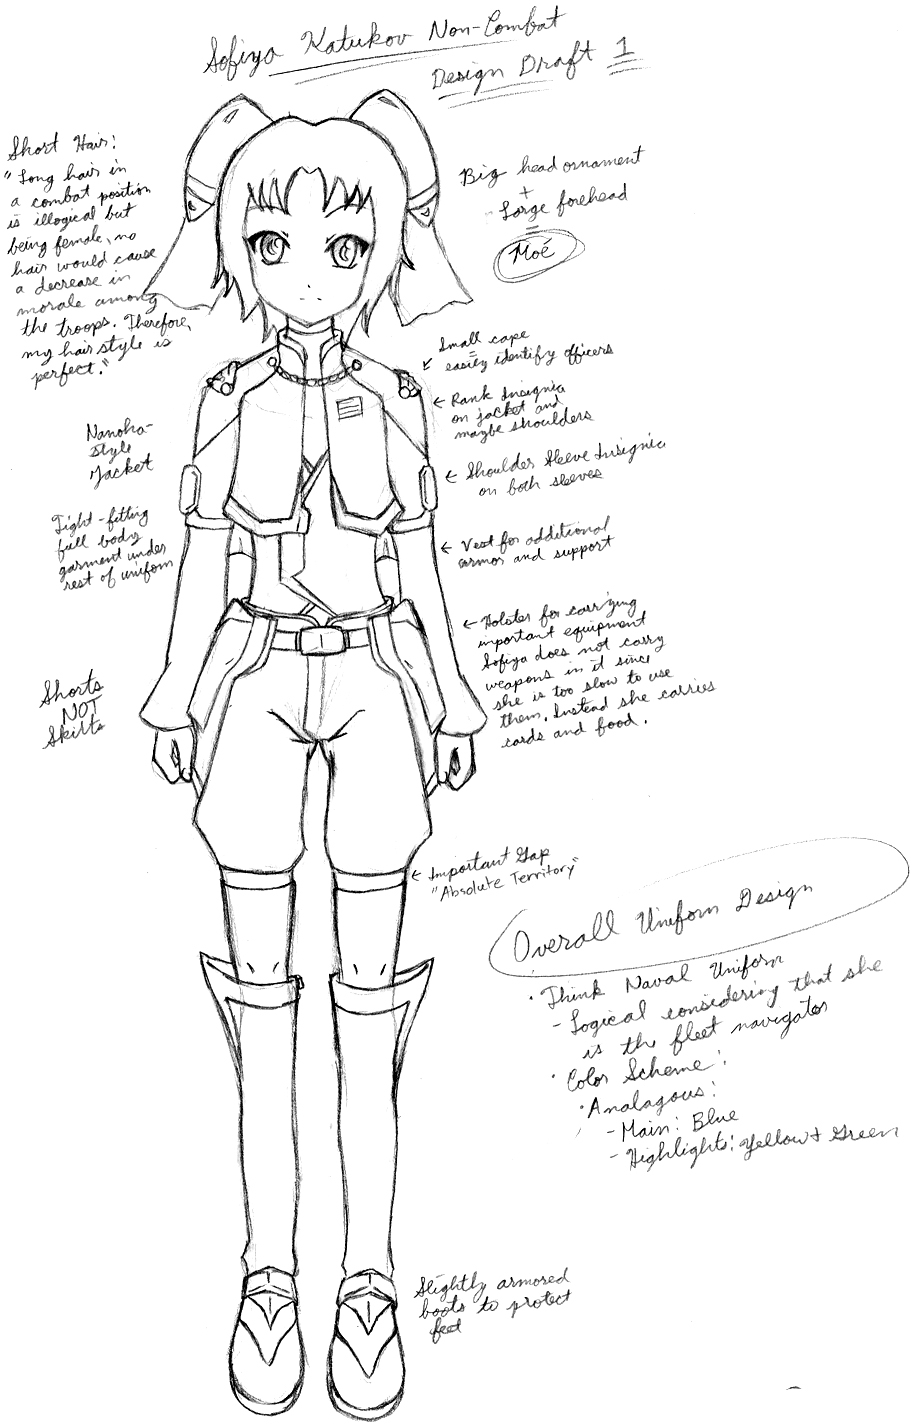 Sofiya Katukov Non-Combat
Design Draft 1
Short Hair:
"Long hair in
a combat position
is illogical but
being female, no
hair would cause
a decrease in
morale among
the troops. Therefore,
my hairstyle is
perfect."
Big head ornament
+
Large forehead
=
Moé
Small cape
easily identify officers
← Rank Insignia
on jacket and
maybe shoulders
Nanoha-
style
Jacket
← Shoulder Sleeve Insignia
on both sleeves
Tight-fitting
full body
garment under
rest of uniform
← Vest for additional
armor and support
← Holster for carrying
important equipment
Sofiya does not carry
weapons in it since
she is too slow to use
them. Instead she carries
cards and food.
Shorts
NOT
Skirts
← Important Gap
"Absolute Territory"
Overall Uniform Design
· Think Naval Uniform
- Logical considering that she
is the fleet navigator
· Color Scheme:
· Analagous:
- Main: Blue
- Highlights: Yellow + Green
Slightly armored
boots to protect
feet